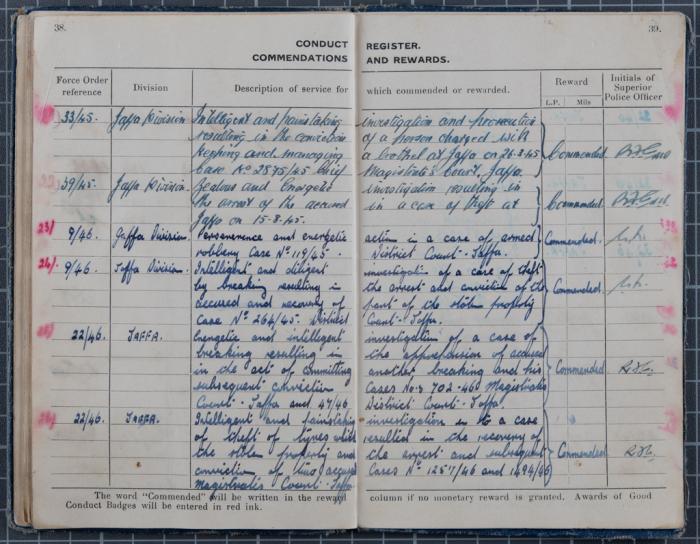 38.
39.
CONDUCT REGISTER.
COMMENDATIONS AND REWARDS.
Force Order reference
Division
Description of service for which commended or rewarded.
Reward
L.P. Mils
Initials of Superior Police Officer
33/45. Jaffa Division Intelligent and painstaking investigation and prosecution
resulting in the conviction of a person charged with
keeping and managing a brothel at Jaffa on 26-3-45 Commended.
Case No 2875/45 Chief Magistrate's Court, Jaffa.
39/45. Jaffa Division. Zealous and Energetic investigation resulting in
the arrest of the accused in a case of theft at Commended
Jaffa on 15-8-45.
23/ 9/46. Jaffa Division. Perseverence and energetic action in a case of armed Commended.
robbery Case No 119/45. District Court - Jaffa.
24/. 9/46. Jaffa Division. Intelligent and diligent investigation of a case of theft
by breaking resulting in the arrest and conviction of the
accused and recovery of part of the stolen property Commended.
Case No 264/45. District Court - Jaffa.
22/46. JAFFA. Energetic and intelligent investigation of a case of
breaking resulting in the apprehension of accused
in the act of committing another breaking and his Commended
subsequent conviction Cases No-s 702-460 Magistrates
Court - Jaffa and 47/46 District Court - Jaffa.
22/46. JAFFA. Intelligent and painstaking investigation in to a case
of theft of tyres which resulted in the recovery of
the stolen property and the arrest and subsequent Commended
conviction of two accused Cases No 1257/46 and 1494/46
Magistrates Court - Jaffa
The word "Commended" will be written in the reward column if no monetary reward is granted. Awards of Good
Conduct Badges will be entered in red ink.